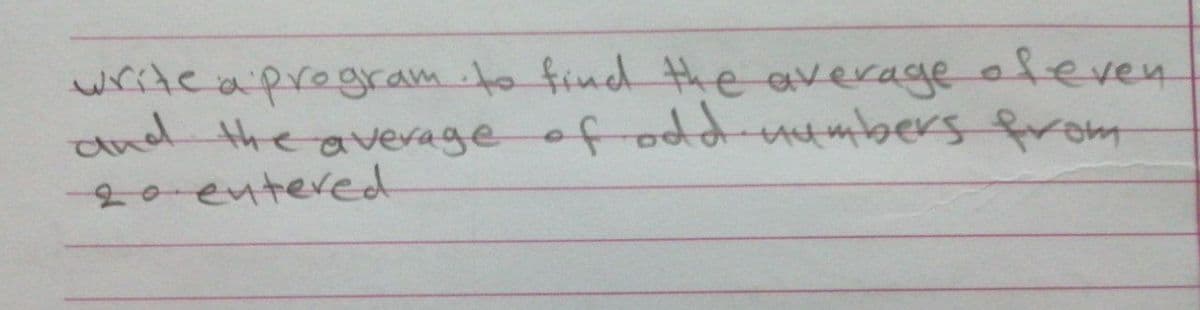 write a program to find the average of even
and the average of odd numbers from
20 entered